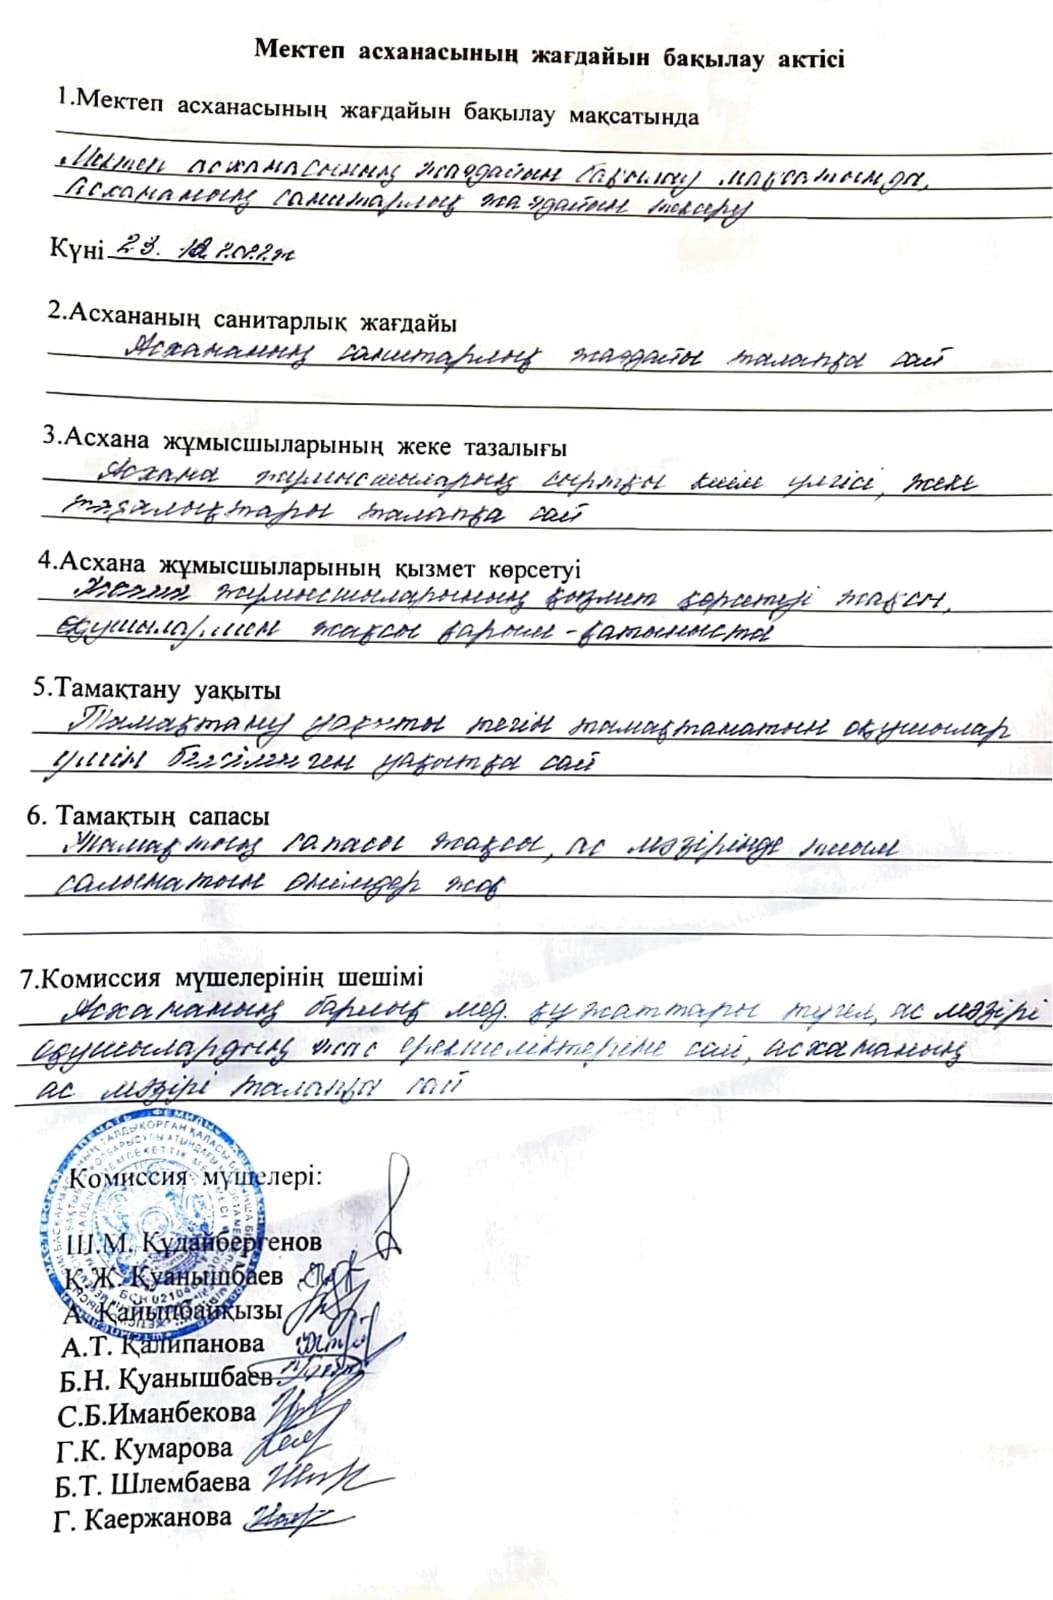 Мектеп асханасының жағдайын бақылау актісі
1.Мектеп асханасының жағдайын бақылау мақсатында
Мектеп асханасының жағдайын бақылау мақсатында,
Асхананың санитарлық жағдайын тексеру
Күні 23. 2022ж
2.Асхананың санитарлық жағдайы
Асхананың санитарлық жағдайы талапқа сай
3.Асхана жұмысшыларының жеке тазалығы
Асхана жұмысшыларың сыртқы киім үлгісі, жеке
тазалықтары талапқа сай
4.Асхана жұмысшыларының қызмет көрсетуі
жұмысшыларының қызмет көрсетуі жақсы,
оқушылармен жақсы қарым-қатынаста
5.Тамақтану уақыты
Тамақтану уақыты тегін тамақтанатын оқушылар
үшін белгіленген уақытқа сай
6. Тамақтың сапасы
Тамақтың сапасы жақсы, ас мәзірінде тыйым
салынатын өнімдер жоқ
7.Комиссия мүшелерінің шешімі
Асхананың барлық мед. құжаттары түгел, ас мәзірі
оқушылардың жас ерекшеліктеріне сай, асхананың
ас мәзірі талапқа сай
Комиссия мүшелері:
Ш.М. Құдайбергенов
Қ.Ж. Қуанышбаев
А. Қайыпбайқызы
А.Т. Қалипанова
Б.Н. Қуанышбаев
С.Б.Иманбекова
Г.К. Кумарова
Б.Т. Шлембаева
Г. Каержанова